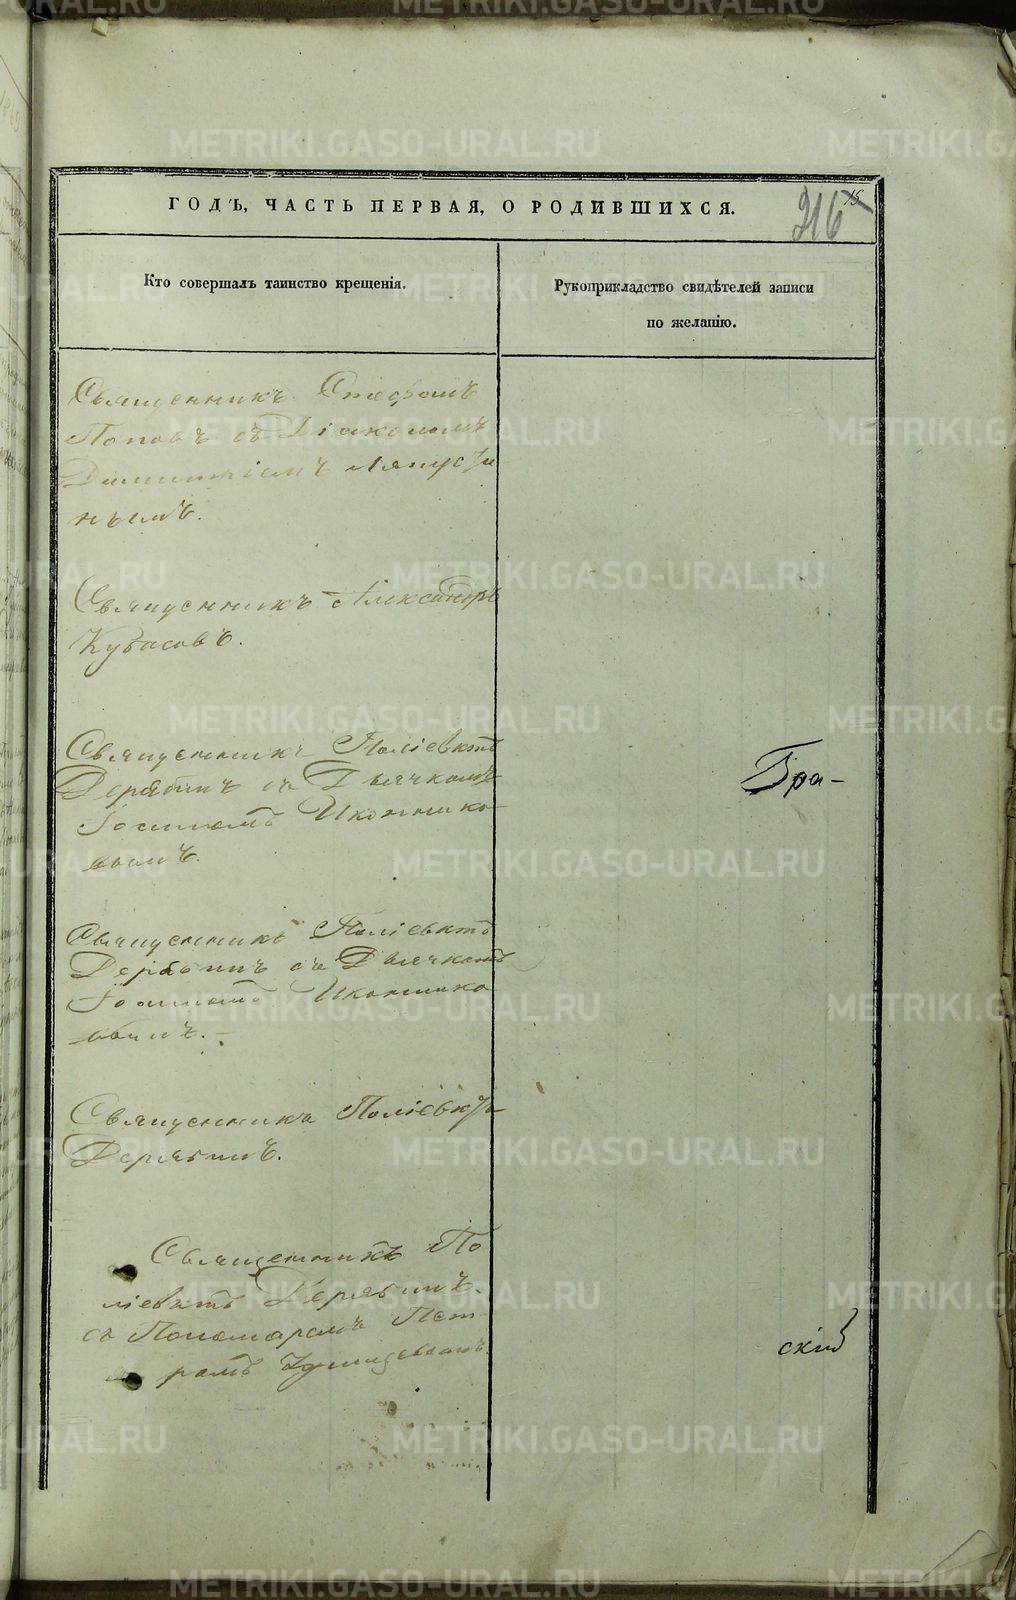 ГОДЪ, ЧАСТЬ ПЕРВАЯ, О РОДИВШИХСЯ.
216
15
Кто совершалъ таинство крещенія.
Рукоприкладство свидѣтелей записи
по желанію.
Священникъ Стефанъ
Поповъ съ Діакономъ
Димитріемъ Ляпусти
нымъ.
Священникъ Александръ
Кубасовъ.
Священникъ Поліевктъ
Дерябинъ съ Дьячкомъ
Іосифомъ Иконнико
вымъ.
Бра-
Священникъ Поліевктъ
Дерябинъ съ Дьячкомъ
Іосифомъ Иконнико
вымъ. -
Священникъ Поліевктъ
Дерябинъ.
Священникъ По
ліевктъ Дерябинъ
съ Пономаремъ Пет
ромъ
скій
METRIKI.GASO-URAL.RU